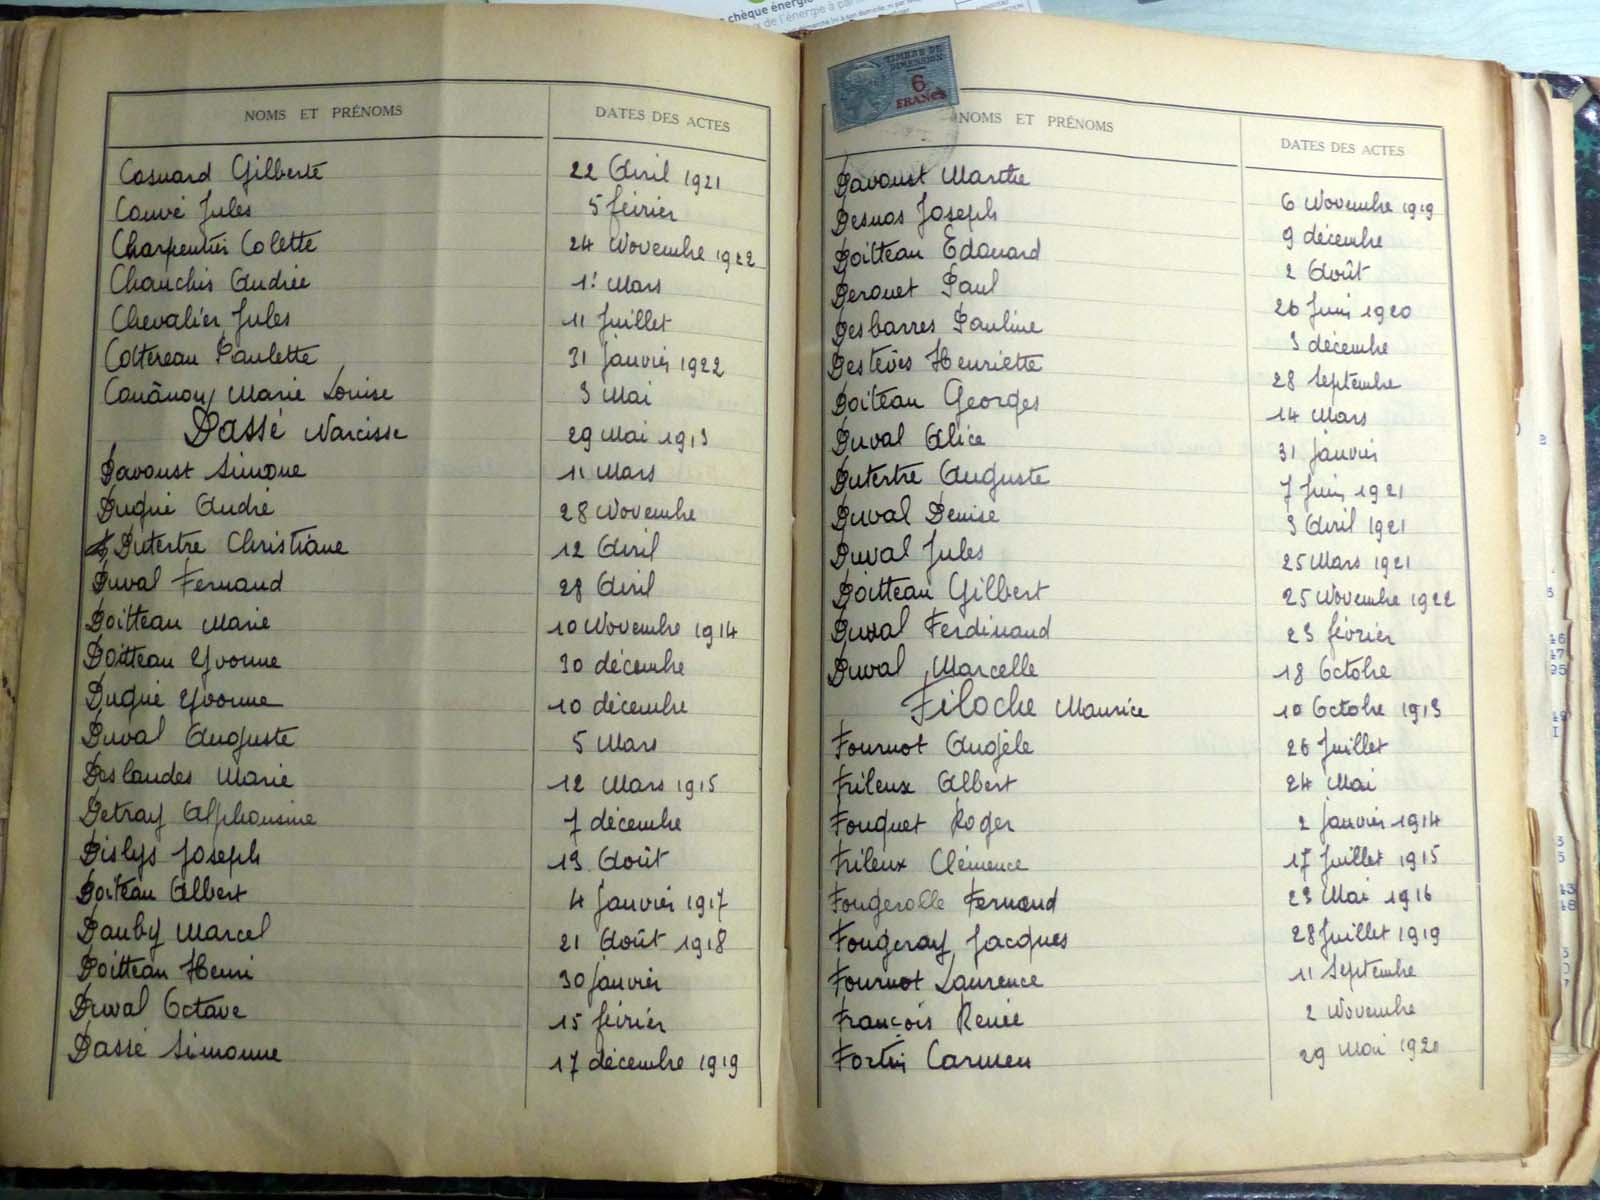 chèque énergie
de l'énergie à
NOMS ET PRÉNOMS DATES DES ACTES
Cosnard Gilberte 22 Avril 1921
Cauvé Jules 5 février
Charpentier Colette 24 Novembre 1922
Chauchis Andrée 1er Mars
Chevalier Jules 11 Juillet
Cottereau Paulette 31 janvier 1922
Marie Louise 3 Mai
Dassé Narcisse 29 Mai 1913
Davoust Simone 11 Mars
Dugué André 28 Novembre
Dutertre Christiane 12 Avril
Duval Fernand 28 Avril
Doitteau Marie 10 Novembre 1914
Doitteau Yvonne 30 décembre
Dugué Yvonne 10 décembre
Duval Auguste 5 Mars
Deslandes Marie 12 Mars 1915
Detray Alphonsine 7 décembre
Dislys Joseph 13 Août
Doiteau Albert 4 Janvier 1917
Dauby Marcel 21 Août 1918
Doitteau Henri 30 janvier
Duval Octave 15 février
Dassé Simonne 17 décembre 1919
TIMBRE DE
DIMENSION
6
FRANCS
NOMS ET PRÉNOMS DATES DES ACTES
Davoust Marthe 6 Novembre 1919
Desnos Joseph 9 décembre
Doitteau Edouard 2 Août
Derouet Paul 26 Juin 1920
Desbarres Pauline 3 décembre
Destèves Henriette 28 Septembre
Doiteau Georges 14 Mars
Duval Alice 31 janvier
Dutertre Auguste 7 Juin 1921
Duval Denise 3 Avril 1921
Duval Jules 25 Mars 1921
Doitteau Gilbert 25 Novembre 1922
Duval Ferdinand 23 février
Duval Marcelle 18 Octobre
Filoche Maurice 10 Octobre 1913
Fournot Angèle 26 Juillet
Frileux Albert 24 Mai
Fouquet Roger 2 janvier 1914
Frileux Clémence 17 Juillet 1915
Fougerolle Fernand 23 Mai 1916
Fougeray Jacques 28 Juillet 1919
Fournot Laurence 11 Septembre
François Renée 2 Novembre
Fortin Carmen 29 Mai 1920